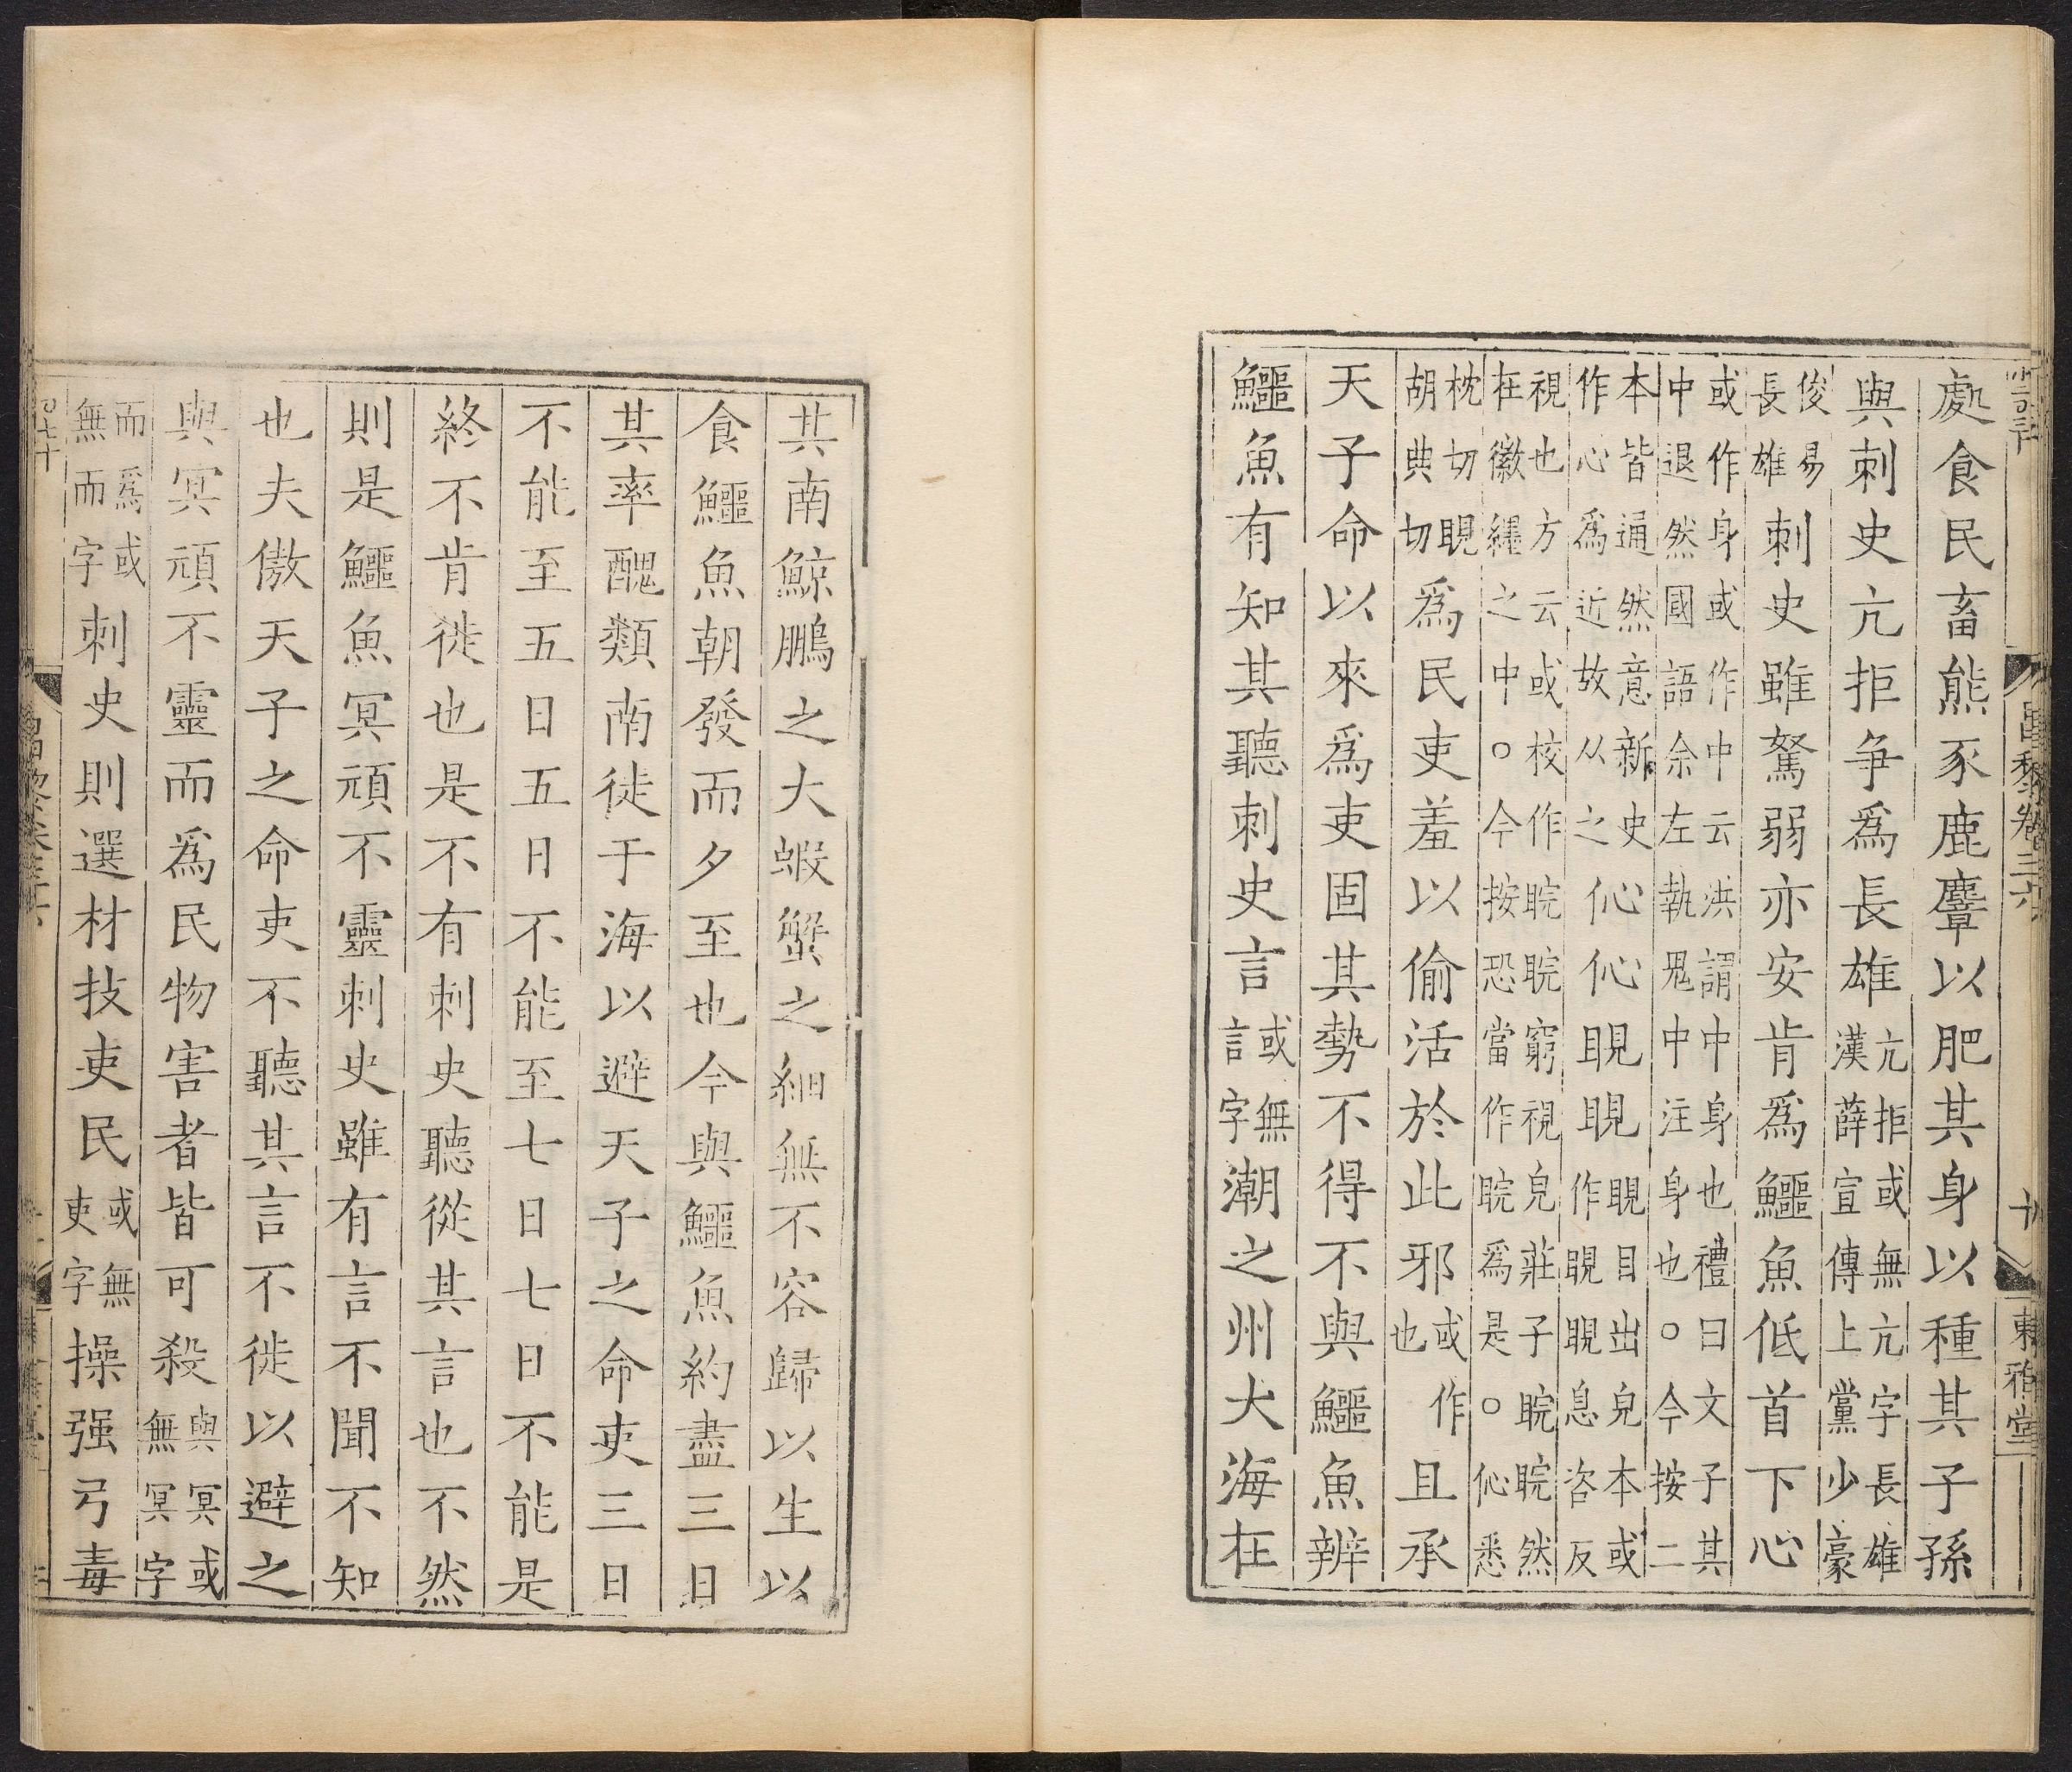 昌黎卷三六 十 東雅堂
處食民畜熊豕鹿麞以肥其身以種其子孫
與刺史亢拒争爲長雄亢拒或無亢字長雄漢薛宣傳上黨少豪
俊易長雄刺史雖駑弱亦安肯爲鱷魚低首下心
或作身或作中云洪謂中身也禮曰文子其中退然國語余左執鬼中注身也○今按二
本皆通然意新史作心爲近故从之伈伈睍睍睍目出皃本或作睍睍息咨反
視也方云或校作睆睆窮視皃莊子睆睆然在徽纆之中○今按恐當作睆爲是○伈悉
枕切睍胡典切爲民吏羞以偷活於此邪或作也且承
天子命以來爲吏固其勢不得不與鱷魚辨
鱷魚有知其聽刺史言或無言字潮之州大海在
其南鯨鵬之大蝦蟹之細無不容歸以生以
食鱷魚朝發而夕至也今與鱷魚約盡三日
其率醜類南徙于海以避天子之命吏三日
不能至五日五日不能至七日七日不能是
終不肯徙也是不有刺史聽從其言也不然
則是鱷魚冥頑不靈刺史雖有言不聞不知
也夫傲天子之命吏不聽其言不徙以避之
與冥頑不靈而爲民物害者皆可殺與冥或無冥字
而爲或無而字刺史則選材技吏民或無吏字操强弓毒